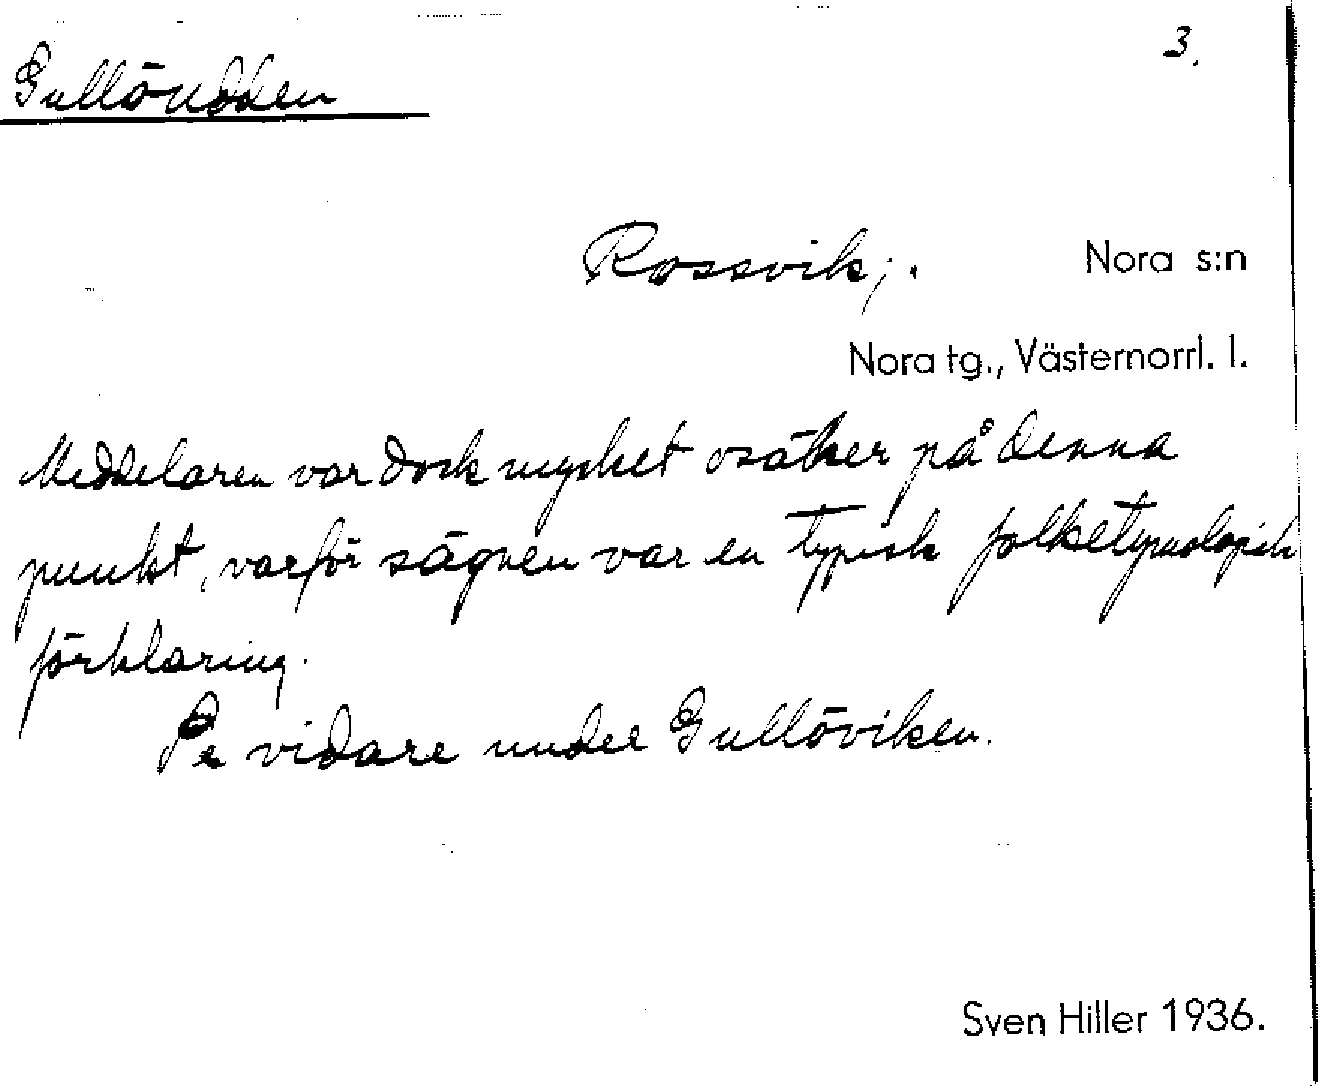 Gullöudden
3.
Rossvik;.
Nora s:n
Nora tg., Västernorrl. l.
Meddelaren var dock mycket osäker på denna
punkt, varför sägnen var en typisk folketymologisk
förklaring.
Se vidare under Gullöviken.
Sven Hiller 1936.